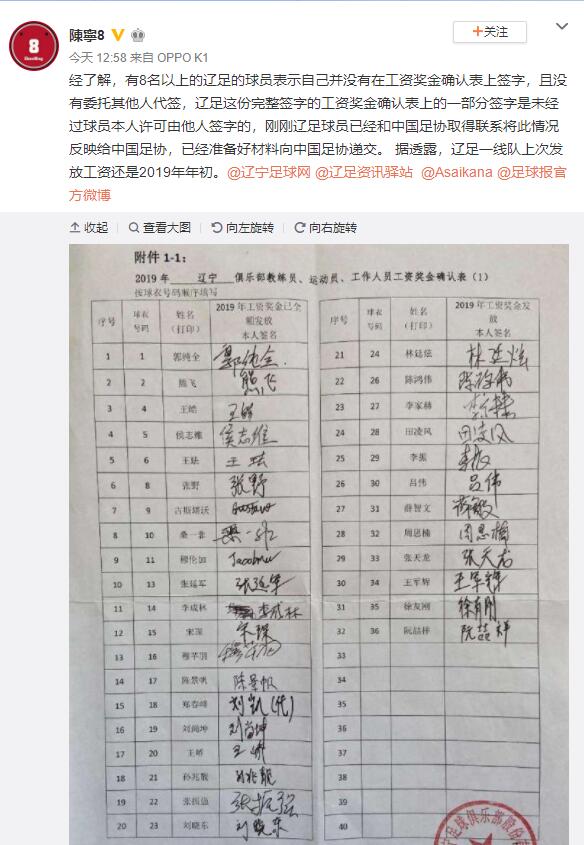 陳寧8
+关注
今天 12:58 来自 OPPO K1
经了解，有8名以上的辽足的球员表示自己并没有在工资奖金确认表上签字，且没
有委托其他人代签，辽足这份完整签字的工资奖金确认表上的一部分签字是未经
过球员本人许可由他人签字的，刚刚辽足球员已经和中国足协取得联系将此情况
反映给中国足协，已经准备好材料向中国足协递交。 据透露，辽足一线队上次发
放工资还是2019年年初。@辽宁足球网 @辽足资讯驿站 @Asaikana @足球报官
方微博
收起 查看大图 向左旋转 向右旋转
附件 1-1：
2019 年 辽宁 俱乐部教练员、运动员、工作人员工资奖金确认表（1）
按球衣号码顺序填写
序号 球衣号码 姓名（打印） 2019 年工资奖金已全额发放 本人签名
1 1 郭纯全 郭纯全
2 2 熊飞 熊飞
3 4 王皓 王皓
4 5 侯志维 侯志维
5 6 王珐 王珐
6 8 张野 张野
7 9 古斯塔沃 Gustavo
8 10 桑一非 桑一非
9 11 穆伦加 Jacob
10 13 张延军 张延军
11 14 李成林 李成林
12 15 宋琛 宋琛
13 16 穆芊羽
14 17 陈景帆 陈景帆
15 18 郑春峰 刘凯(代)
16 19 刘尚坤 刘尚坤
17 20 王峤
18 21 孙兆靓 孙兆靓
19 22 张振强 张振强
20 23 刘晓东 刘晓东
序号 球衣号码 姓名（打印） 2019 年工资奖金发放 本人签名
21 24 林廷炫 林廷炫
22 26 陈鸿伟
23 27 李家赫
24 28 田凌风 田凌风
25 29 李振 李振
26 30 吕伟 吕伟
27 31 薛智文
28 32 周思楠 周思楠
29 33 张天龙 张天龙
30 34 王军辉 王军辉
31 35 徐友刚 徐友刚
32 36 阮喆梓
33
34
35
36
37
38
39
40
足球俱乐部股份有